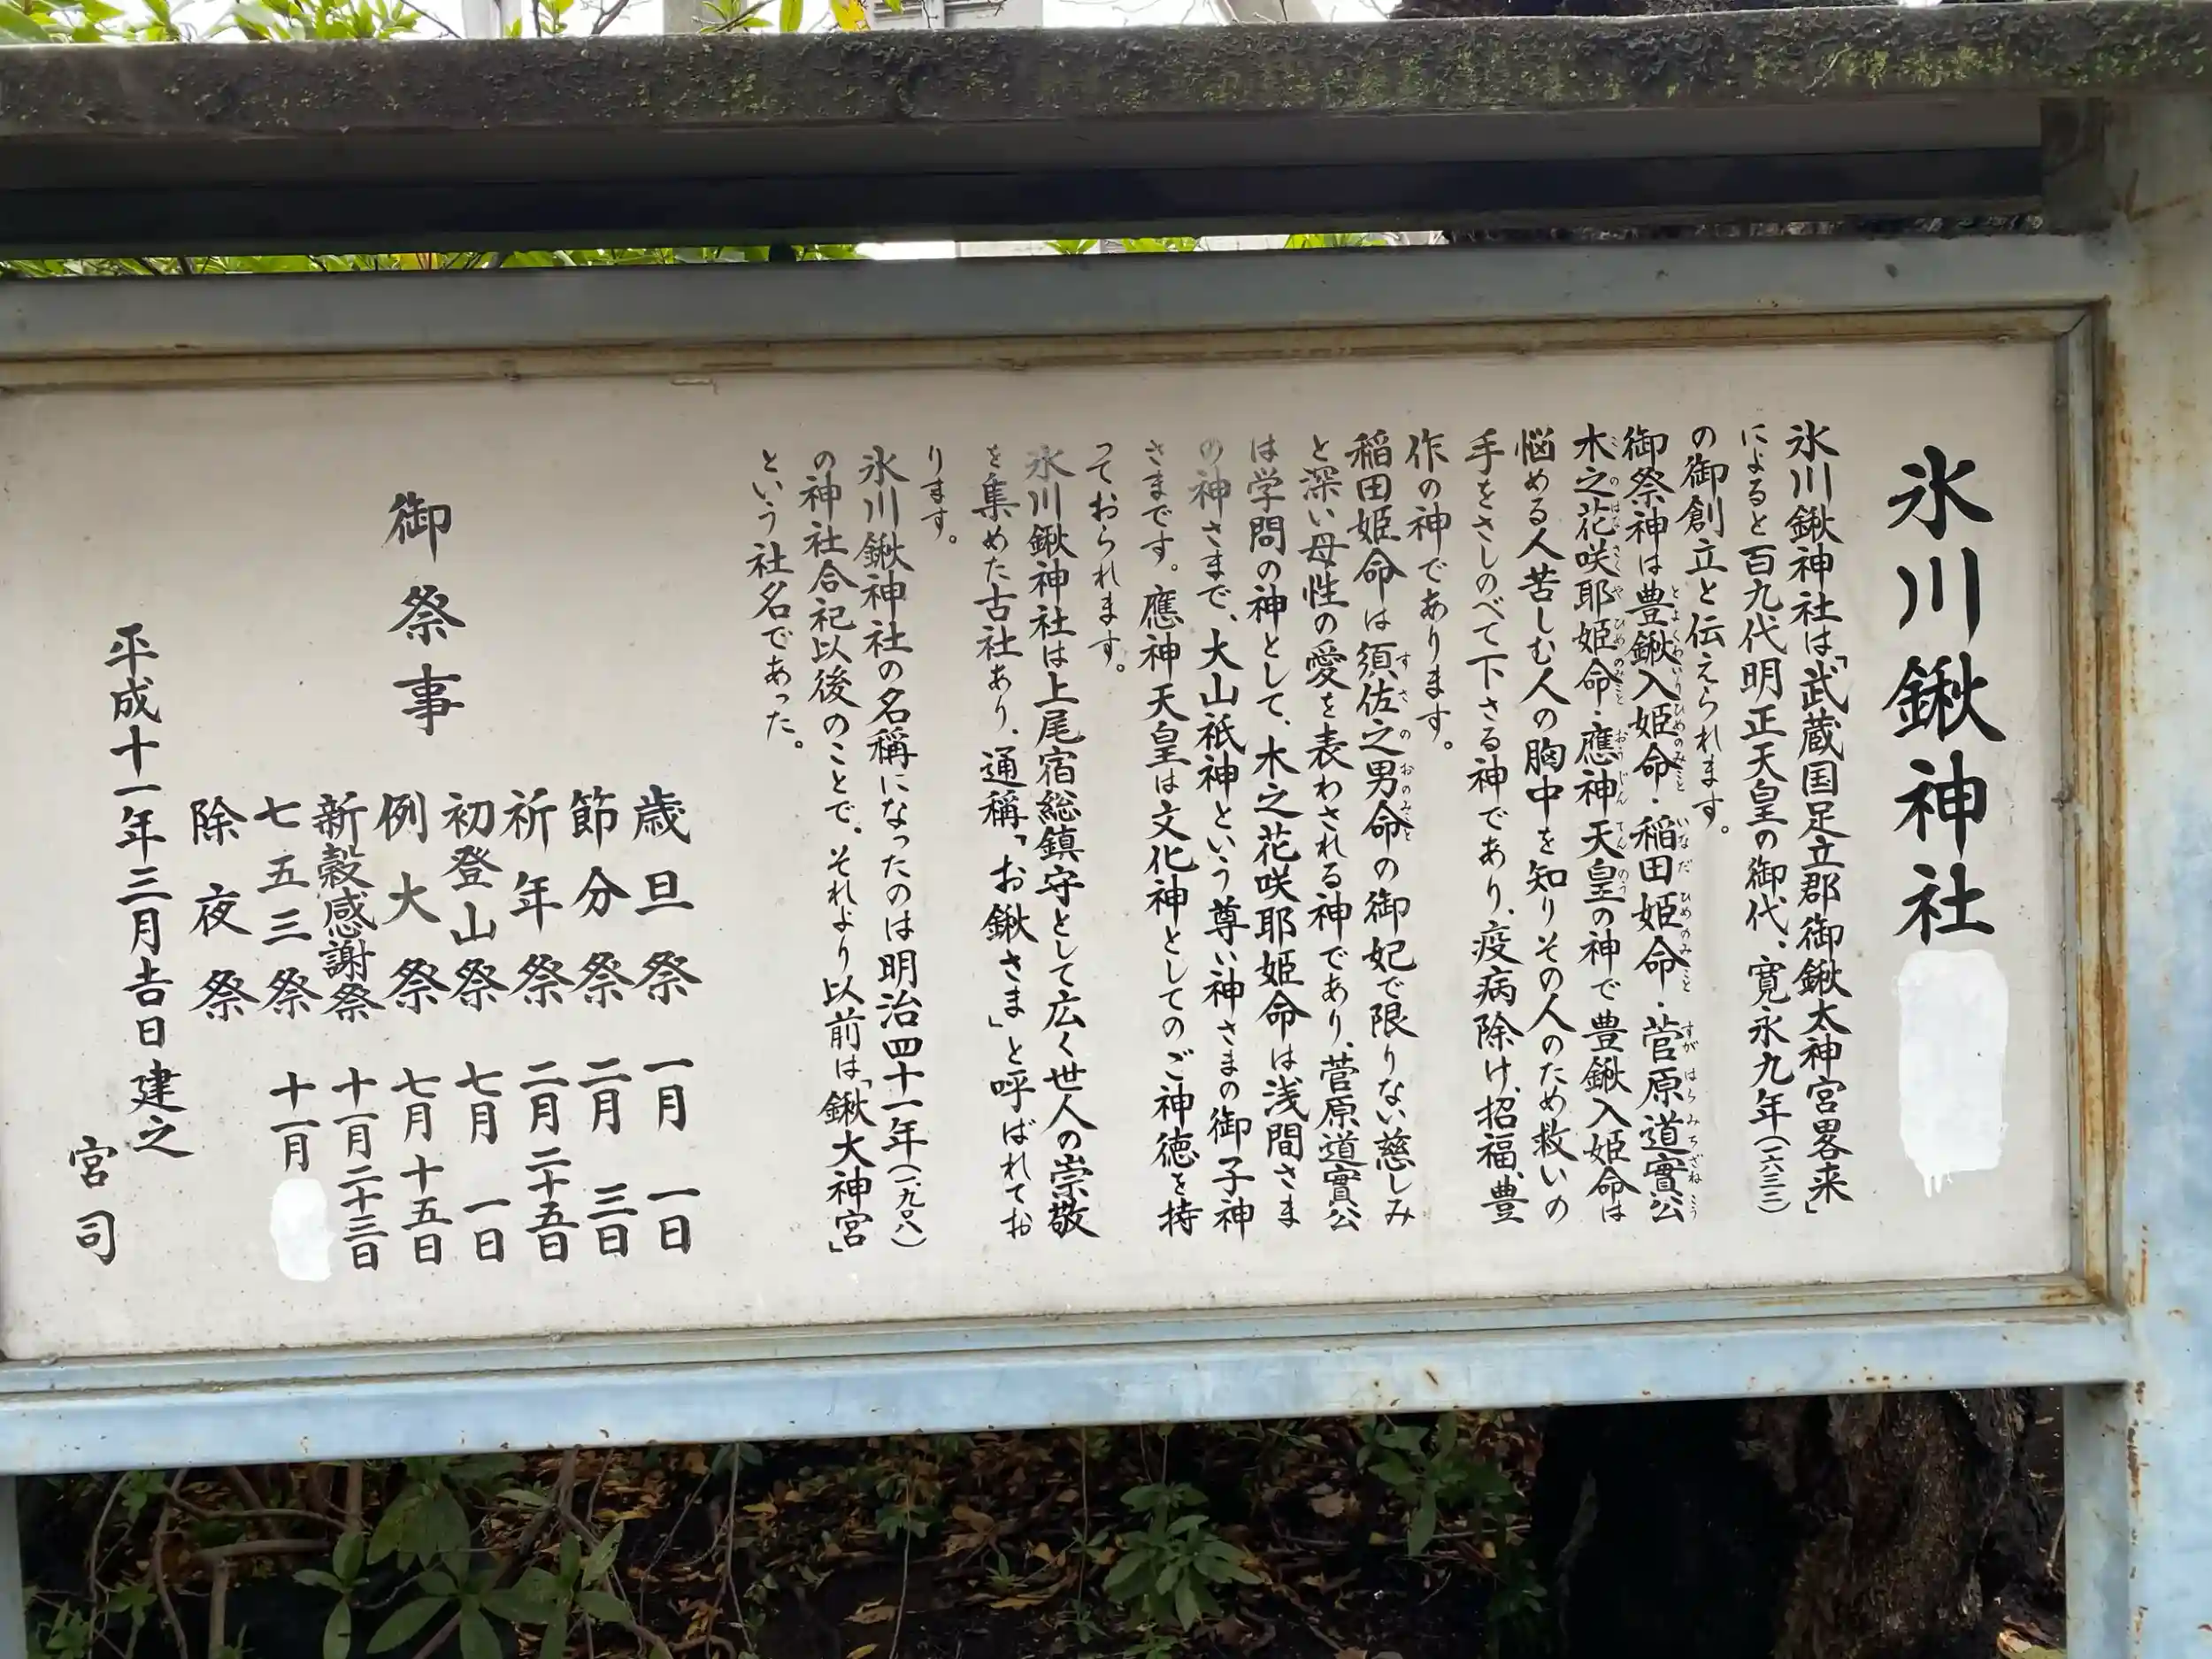 氷川鍬神社
氷川鍬神社は「武蔵国足立郡御鍬太神宮畧来」
によると百九代明正天皇の御代、寛永九年(一六三二)
の御創立と伝えられます。
御祭神は豊鍬入姫命・稲田姫命・菅原道實公
木之花咲耶姫命・應神天皇の神で豊鍬入姫命は
悩める人苦しむ人の胸中を知りその人のため救いの
手をさしのべて下さる神であり、疫病除け、招福、豊
作の神であります。
稲田姫命は須佐之男命の御妃で限りない慈しみ
と深い母性の愛を表わされる神であり、菅原道實公
は学問の神として、木之花咲耶姫命は浅間さま
の神さまで、大山祇神という尊い神さまの御子神
さまです。應神天皇は文化神としてのご神徳を持
っておられます。
氷川鍬神社は上尾宿総鎮守として広く世人の崇敬
を集めた古社あり、通稱「お鍬さま」と呼ばれてお
ります。
氷川鍬神社の名稱になったのは明治四十一年(一九〇八)
の神社合祀以後のことで、それより以前は「鍬大神宮」
という社名であった。
御祭事
歳旦祭 一月一日
節分祭 二月三日
祈年祭 二月二十五日
初登山祭 七月一日
例大祭 七月十五日
新穀感謝祭 十一月二十三日
七五三祭 十一月
除夜祭
平成十一年三月吉日建之
宮司